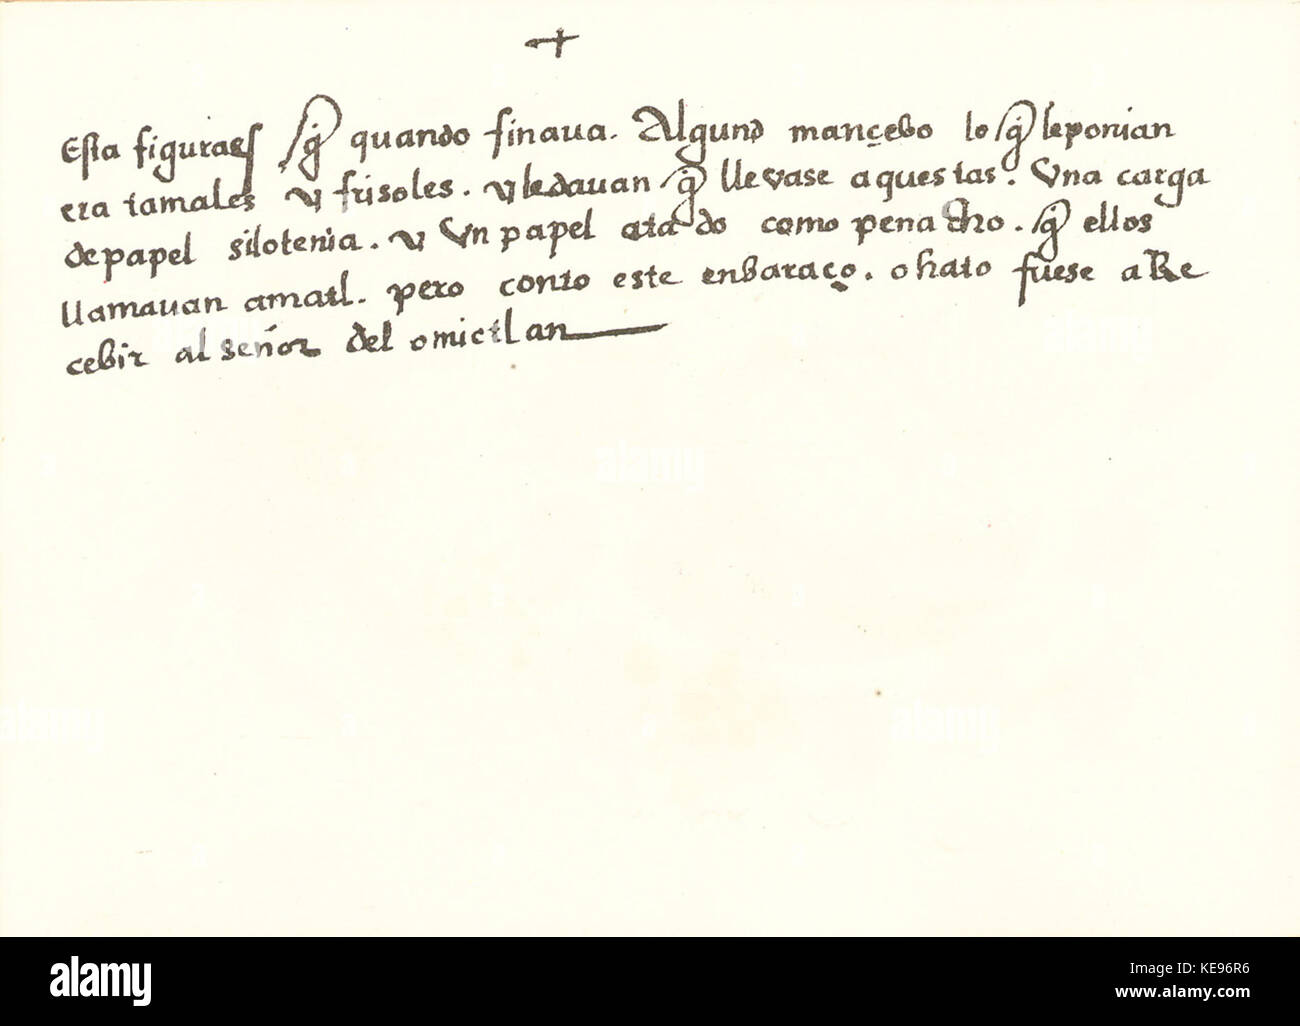 +
Esta figura es q̃ quando finaua. Alguno mançebo lo q̃ le ponian
era tamales y frisoles. y le dauan q̃ llevase a questas. Una carga
de papel y Un papel atado como penacho. q̃ ellos
llamauan amatl. pero conto este enbaraço. o hato fuese a Re
cebir al señor del omictlan
alamy
Image ID: KE96R6
www.alamy.com